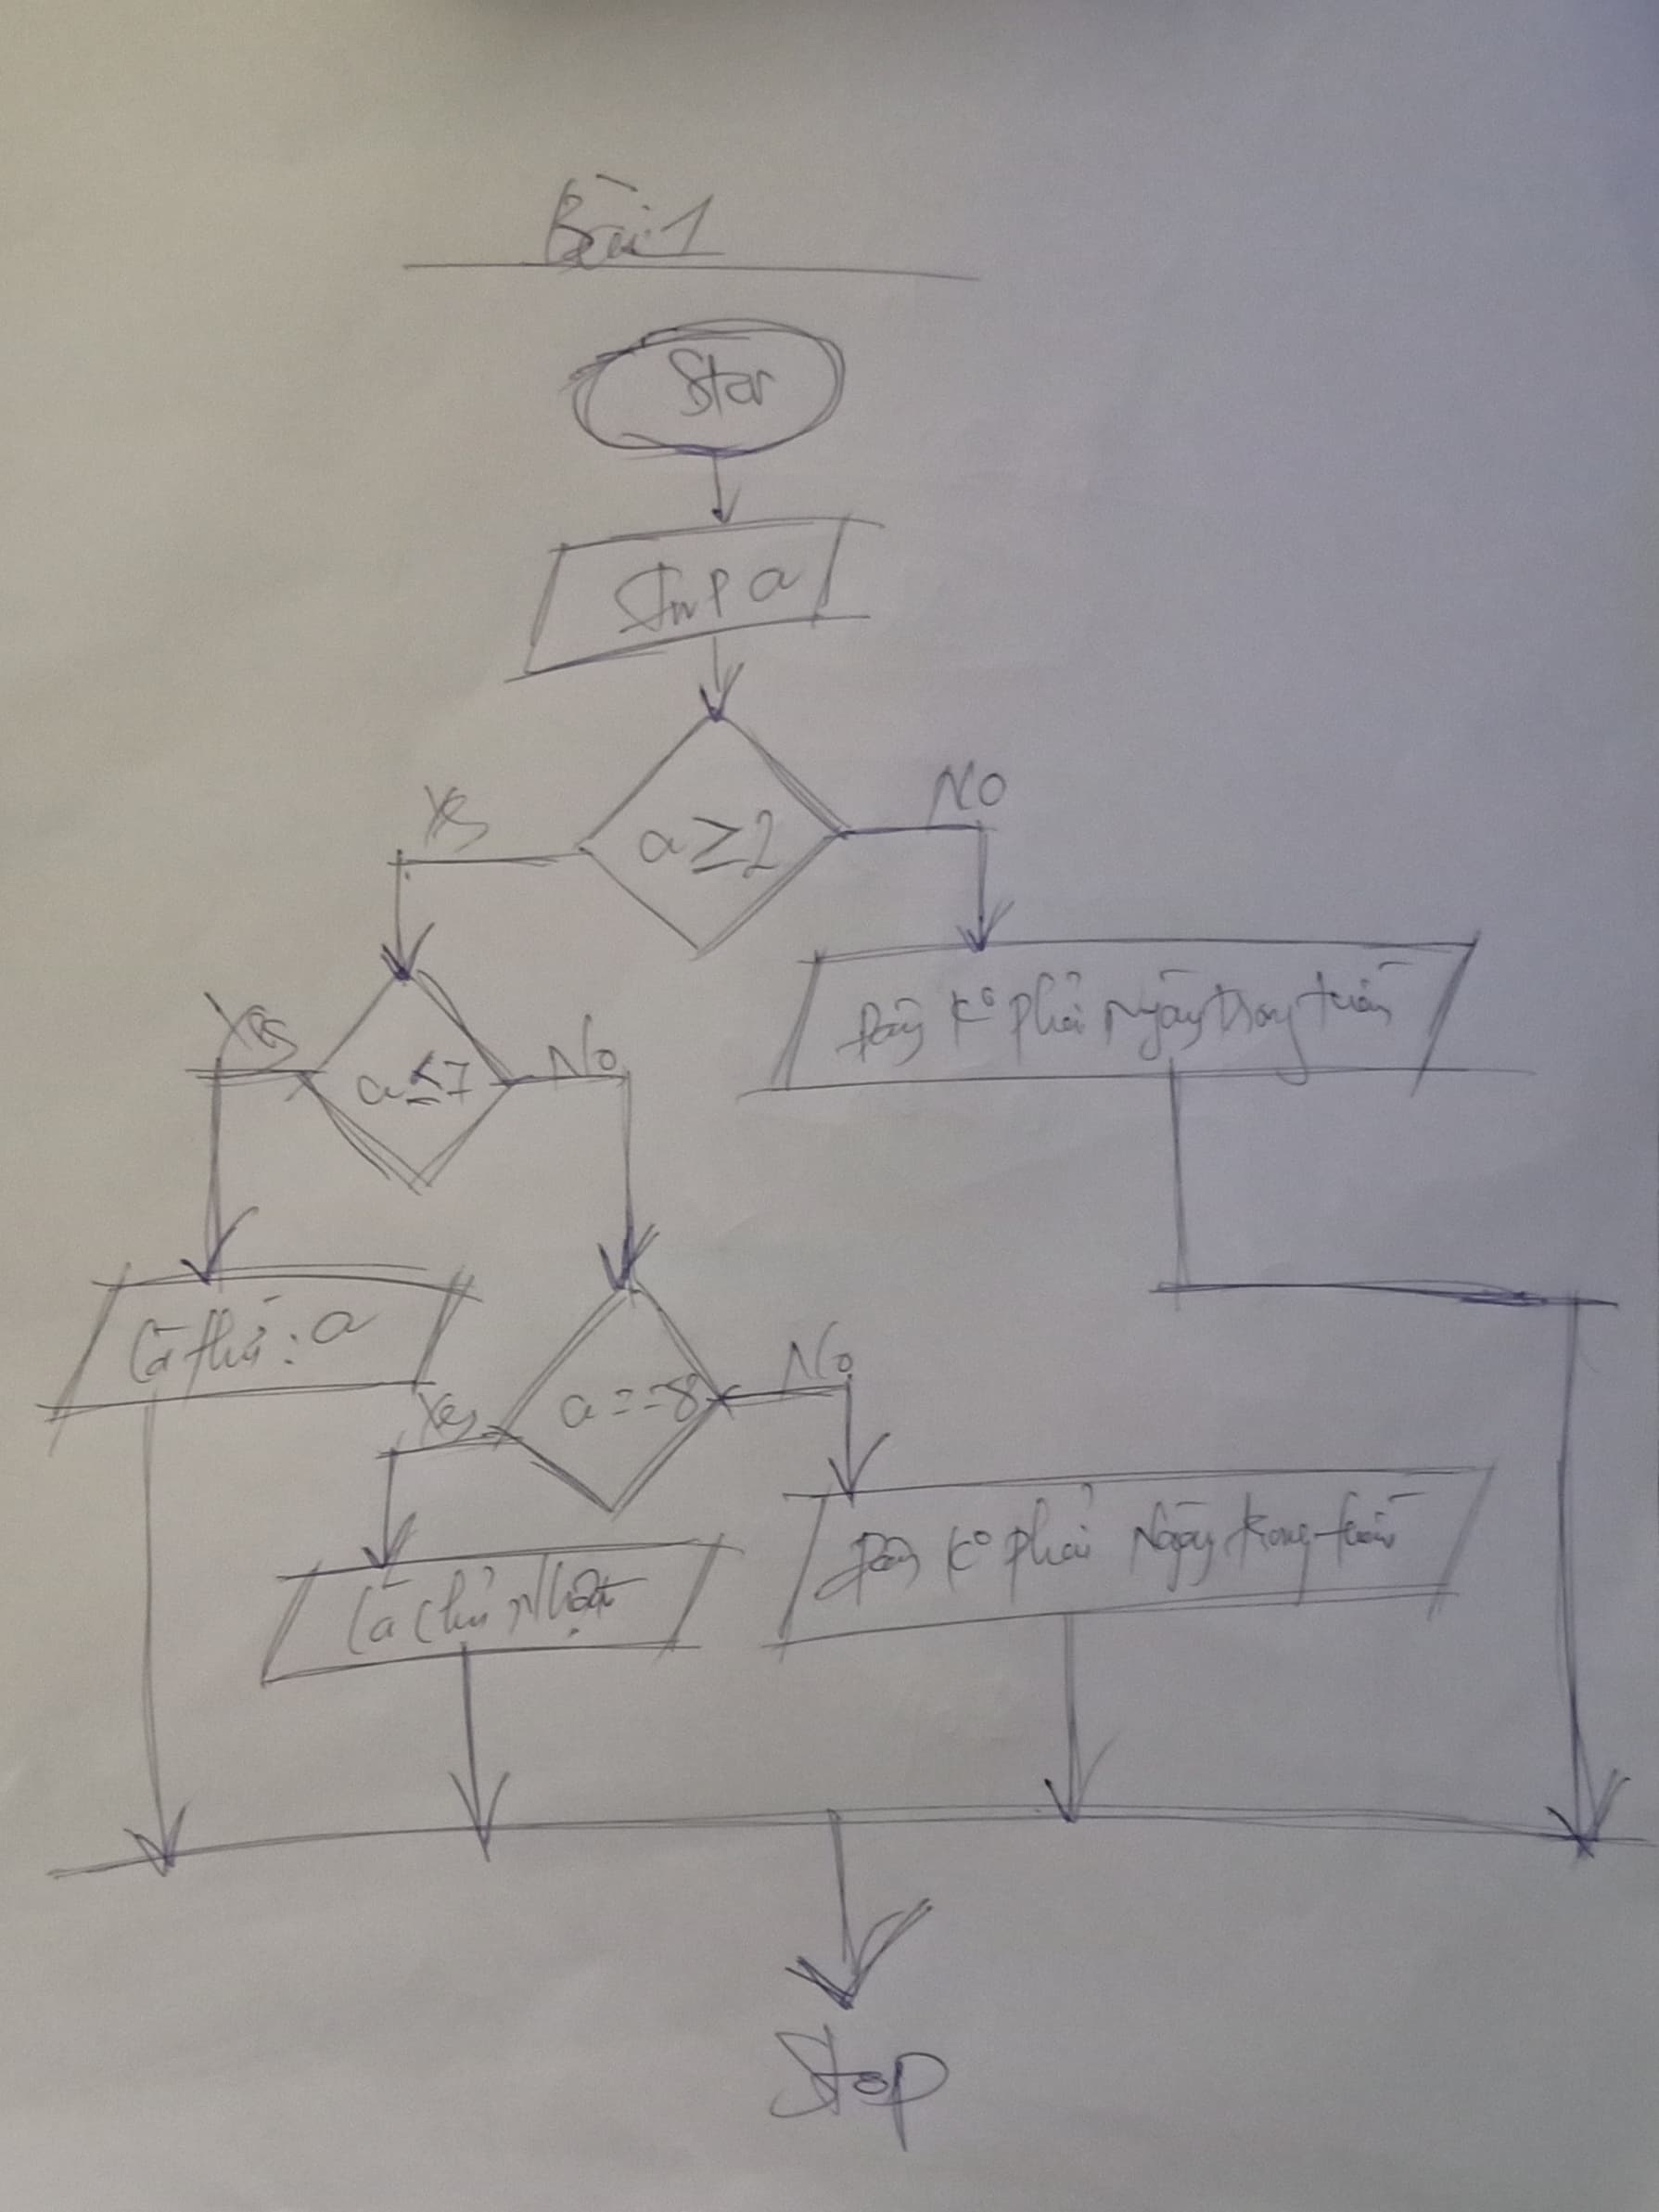 Bài 1
Star
Inp a
a ≥ 2
Yes
NO
a ≤ 7
Yes
No
Đây ko phải Ngày trong tuần
Là thứ: a
a == 8
Yes
No
Là Chủ Nhật
Đây ko phải Ngày trong tuần
Stop